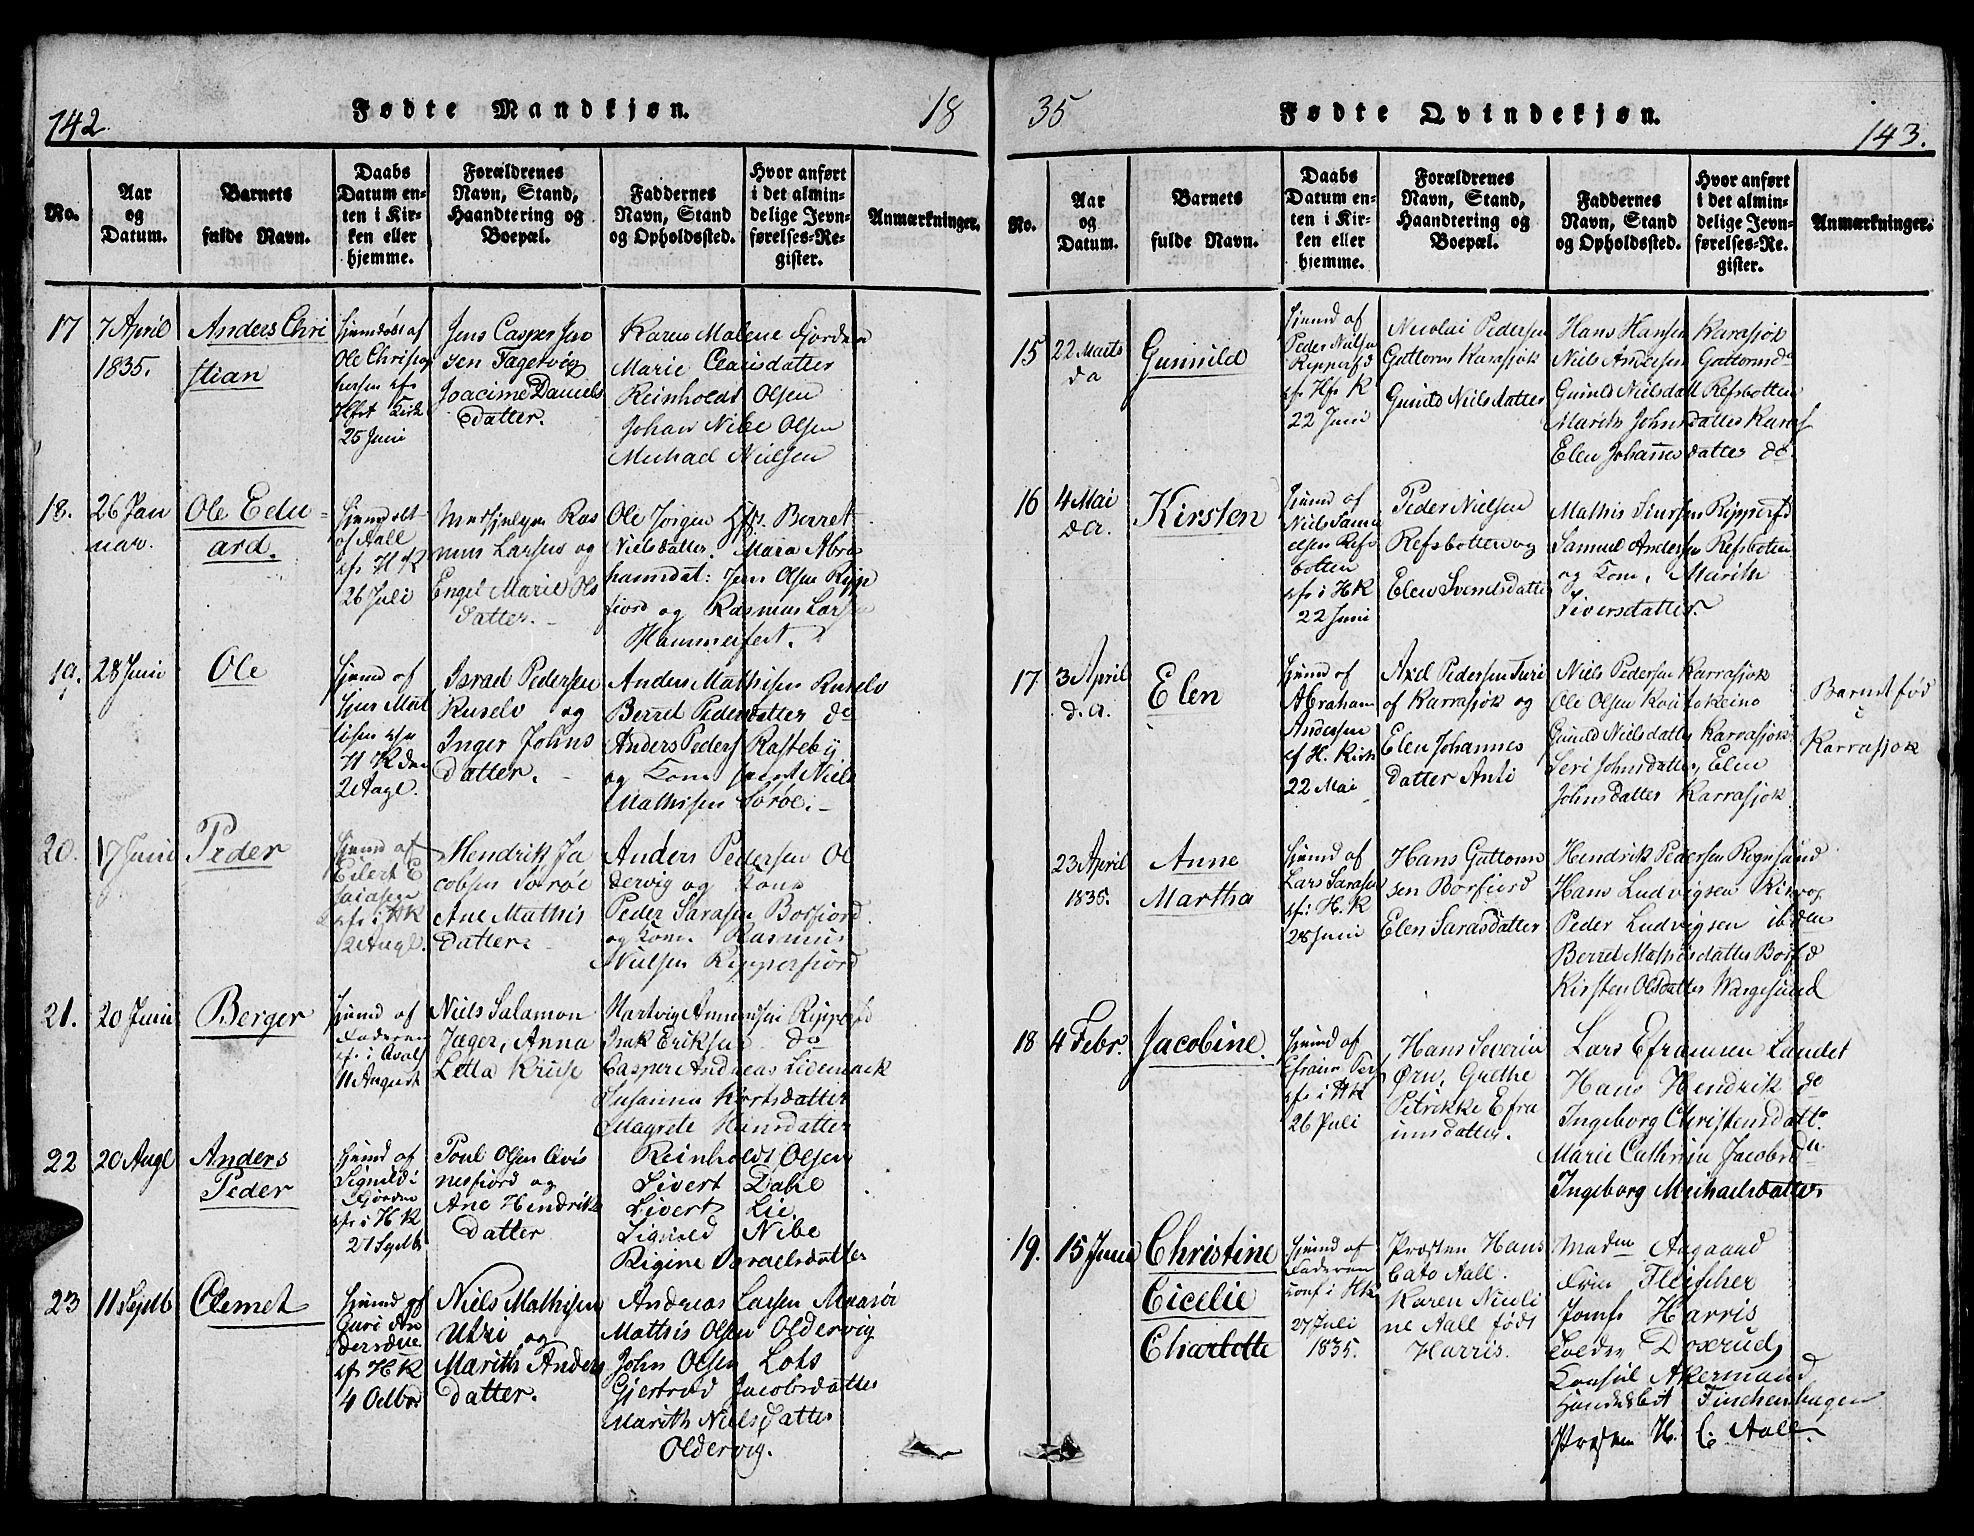 142.
Fødte Mandkjøn.
18
No.
Aar og Datum.
Barnets fulde Navn.
Daabs Datum enten i Kirken eller hjemme.
Forældrenes Navn, Stand, Haandtering og Boepæl.
Faddernes Navn, Stand og Opholdssted.
Hvor anført i det almindelige Jevnførelses-Register.
Anmærkninger.
17
7 April
1835.
Anders Chri
stian
hjemdøbt af
Ole Christop
hersen
Kirk
25 Juni
Jens Casper Jen
sen Fagervog
Joacime Daniels
datter.
Karen Malene Fjorden
Marie Clausdatter
Reinholdt Olsen
Johan Nibe Olsen
Michael Nielsen
18.
26 Jan
uar.
Ole Edu
ard.
hjemdøbt
af Aall
H K
26 Juli
Ras
mus Larsen og
Engel Marie Ols
datter.
Ole Jørgen Berret
Nielsdatter. Mara Abra
hamsdat: Jens Olsen Ripp
fiord og Rasmus Lars
Hammerfest.
19.
28 Juni
Ole
hjemd af
Mat
tisen
H K den
2 Augl.
Israel Pedersen
Kuselv og
Inger Johns
datter.
Anders Mathisen Kuselv
Berret Pedersdatter do
Anders Peders Rasteby
og Kone samt Niels
Mathisen Sørøe.
20.
17 Juni
Peder
hjemd af
Eilert E
saiasen
i HK
2 Augl.
Hendrik Ja
cobsen Sørøe
Ane Mathis
datter.
Anders Pedersen Ol
dervig og Kone
Peder Sarasen Borfiord
og Kone. Rasmus
Nielsen Ripperfiord
21.
20 Juni
Berger
hjemd af
Faderen
i Qvals
11 August
Niels Salamon
Jæger, Anna
Letta Kruse
Hartvig Ammundsen Ripperfd
Isak Eriksen do
Casper Andreas Lidemark
Susanna Kortsdatter
Magrete Hansdatter
22
20 Augl
Anders
Peder
hjemd af
Signild i
Fjorden
i H K
21 Septb
Poul Olsen Qvis
nesfiord og
Ane Hendriks
datter
Reinholdt Olsen
Sivert Dahl
Sivert Lie
Signild Nibe
Rigine Israelsdatter
23
11 Septb
Clemet
hjemd af
Guri An
dersdtte
H K
4 Octbr
Niels Mathisen
Utsi og
Marith Anders
datter.
Andreas Larsen Masøe
Mathis Olsen Oldervig
John Olsen Lots
Gjertrud Jacobsdatter
Marith Nielsdatter
Oldervig.
35
Fødte Qvindekjøn.
143.
No.
Aar og Datum.
Barnets fulde Navn.
Daabs Datum enten i Kirken eller hjemme.
Forældrenes Navn, Stand, Haandtering og Boepæl.
Faddernes Navn, Stand og Opholdssted.
Hvor anført i det almindelige Jevnførelses-Register.
Anmærkninger.
15
22 Marts
da
Gunnild
hjemd af
Peder Nielsen
Ripperfd
K
22 Juni
Nicolai Pedersen
Guttorm Karasjok
Gunild Nielsdatter
Hans Hansen Karasjok
Niels Andersen Guttormsd
Gunild Nielsdatt Refsbotten
Marith Johnsdatter Karasj
Elen Johannesdatter do.
16
4 Mai
da.
Kirsten
hjemd af
Niels Samu
elsen Refs
botten
i H K
22 Juni
Peder Nielsen
Refsbotten og
Elen Svendsdatter
Mathis Siursen Ripperfd
Samuel Andersen Refsbotten
og Kone, Marith
Siversdatter.
17
3 April
da.
Elen
hjemd af
Abraham
Andersen
H. Kirk
22 Mai
Axel Pedersen Turi
af Karrasjok og
Elen Johannes
datter Anti
Niels Pedersen Karrasjok
Ole Olsen Koutokeino
Gunild Nielsdatter Karrasjok
Seri Johnsdatter, Elen
Johnsdatter Karrasjok
Barnet fød
i
Karrasjok
23 April
1835.
Anne
Martha
hjemd af
Lars Sarasen
i H. K
28 Juni
Hans Guttorm
sen Borfierd
Elen Sarasdatter
Hendrik Pedersen Rognsund
Hans Ludvigsen
Peder Ludvigsen ibden
Berret Mathisdatter Borfd
Kirsten Olsdatter Wargesund
18
4 Febr.
Jacobine.
hjemd af
Efraim Per
i HK
26 Juli
Hans Severin
Ørn, Grethe
Petrikke Efra
imsdatter.
Lars Efraimsen Landet
Hans Hendrik do
Ingeborg Christensdatt.
Marie Cathrin Jacobsd
Ingeborg Michaelsdatter
19.
15 Juni
Christine
Cicelie
Charlotte
hjemd af
Faderen
conf i Hk
27 Juli
1835.
Præsten Hans
Cato Aall.
Karen Nicoli
ne Aall født
Harris.
Madm Aagaard
Frue Fleischer
Jomf. Harris
Tolder Doxrud
Consul Akermand
Finckenhagen
Præsten H. C. Aall